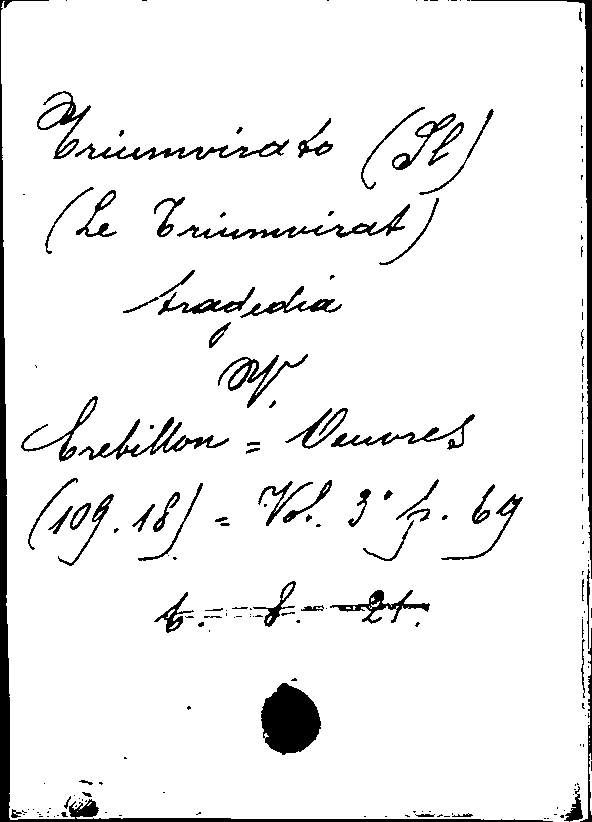 Triumvirato (Il)
(Le Triumvirat)
tragedia
V.
Crebillon = Oeuvres
(109.18) = Vol. 3° p. 69